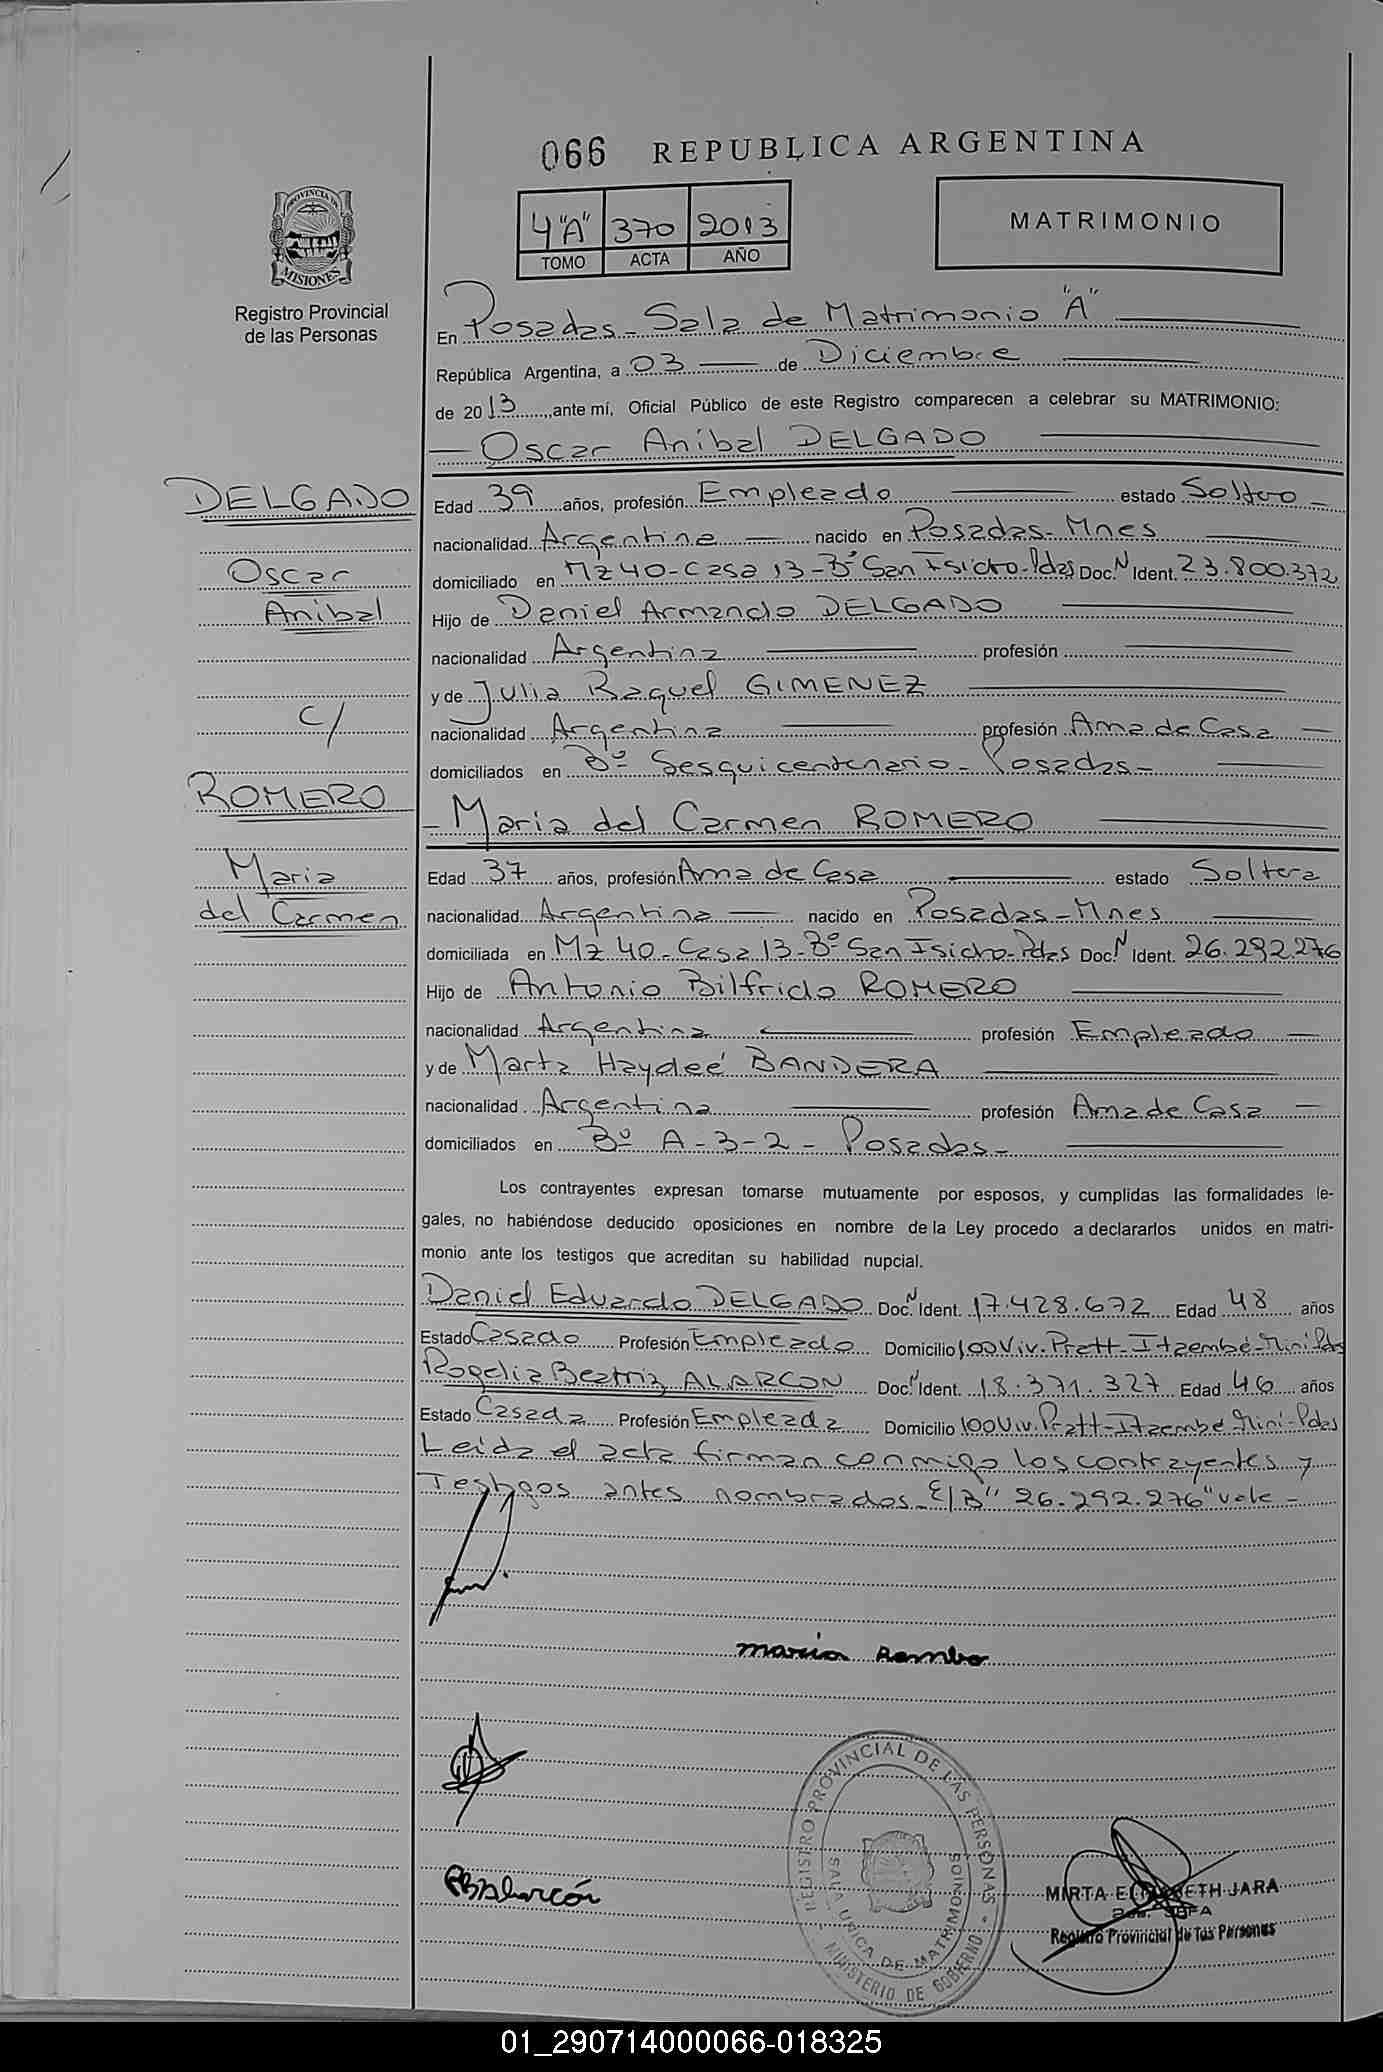 066 REPUBLICA ARGENTINA
PROVINCIA DE
MISIONES
Registro Provincial
de las Personas
4"A" 370 2013
TOMO ACTA AÑO
MATRIMONIO
En Posadas - Sala de Matrimonio "A"
República Argentina, a 03 de Diciembre
de 2013, ante mí, Oficial Público de este Registro comparecen a celebrar su MATRIMONIO:
- Oscar Anibal DELGADO
DELGADO
Oscar
Anibal
C/
ROMERO
Maria
del Carmen
Edad 39 años, profesión Empleado estado Soltero -
nacionalidad Argentina - nacido en Posadas - Mnes
domiciliado en Mz 40 - Casa 13 - Bº San Isidro - Pdas Doc. N Ident. 23.800.372
Hijo de Daniel Armando DELGADO
nacionalidad Argentina profesión
y de Julia Raquel GIMENEZ
nacionalidad Argentina profesión Ama de Casa -
domiciliados en Bº Sesquicentenario - Posadas -
- Maria del Carmen ROMERO
Edad 37 años, profesión Ama de Casa estado Soltera
nacionalidad Argentina - nacido en Posadas - Mnes
domiciliada en Mz 40 - Casa 13 - Bº San Isidro - Pdas Doc. N Ident. 26.292.276
Hijo de Antonio Bilfrido ROMERO
nacionalidad Argentina profesión Empleado -
y de Marta Haydeé BANDERA
nacionalidad Argentina profesión Ama de Casa -
domiciliados en Bº A - 3 - 2 - Posadas -
Los contrayentes expresan tomarse mutuamente por esposos, y cumplidas las formalidades le-
gales, no habiéndose deducido oposiciones en nombre de la Ley procedo a declararlos unidos en matri-
monio ante los testigos que acreditan su habilidad nupcial.
Daniel Eduardo DELGADO Doc. N Ident. 17.428.672 Edad 48 años
Estado Casado Profesión Empleado Domicilio 100 Viv. Pratt - Itaembé - Mini Pdas
Rogelia Beatriz ALARCON Doc. N Ident. 18.371.327 Edad 46 años
Estado Casada Profesión Empleada Domicilio 100 Viv. Pratt - Itaembé Mini - Pdas
Leida el acta firman conmigo los contrayentes y
Testigos antes nombrados - E/B" 26.292.276" vale -
maria
RBAlarcón
REGISTRO PROVINCIAL DE LAS PERSONAS
SALA UNICA DE MATRIMONIOS
MINISTERIO DE GOBIERNO
MIRTA ELIZABETH JARA
Registro Provincial de las Personas
01_290714000066-018325